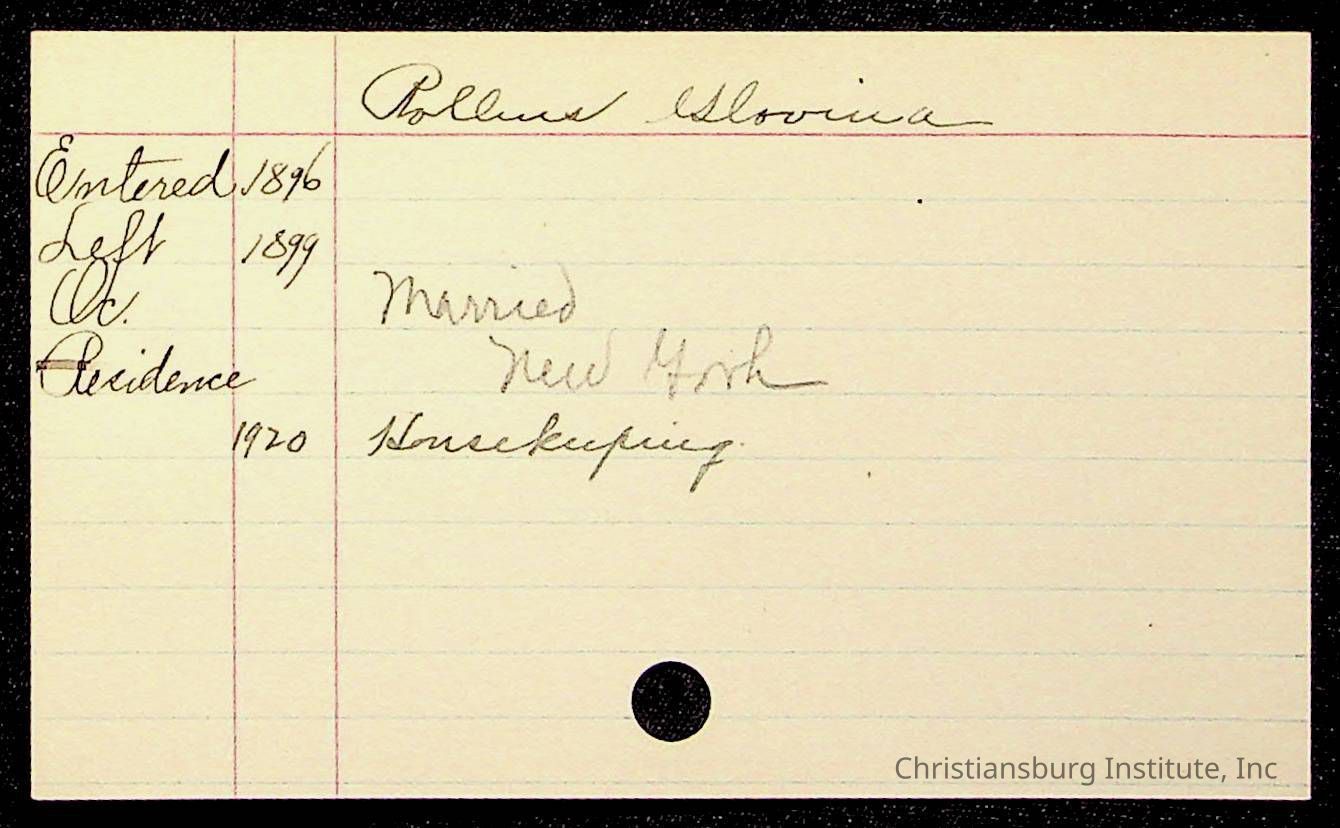 Rollins Glovina
Entered 1896
Left 1899
Oc. Married
Residence New York
1920 Housekeeping
Christiansburg Institute, Inc